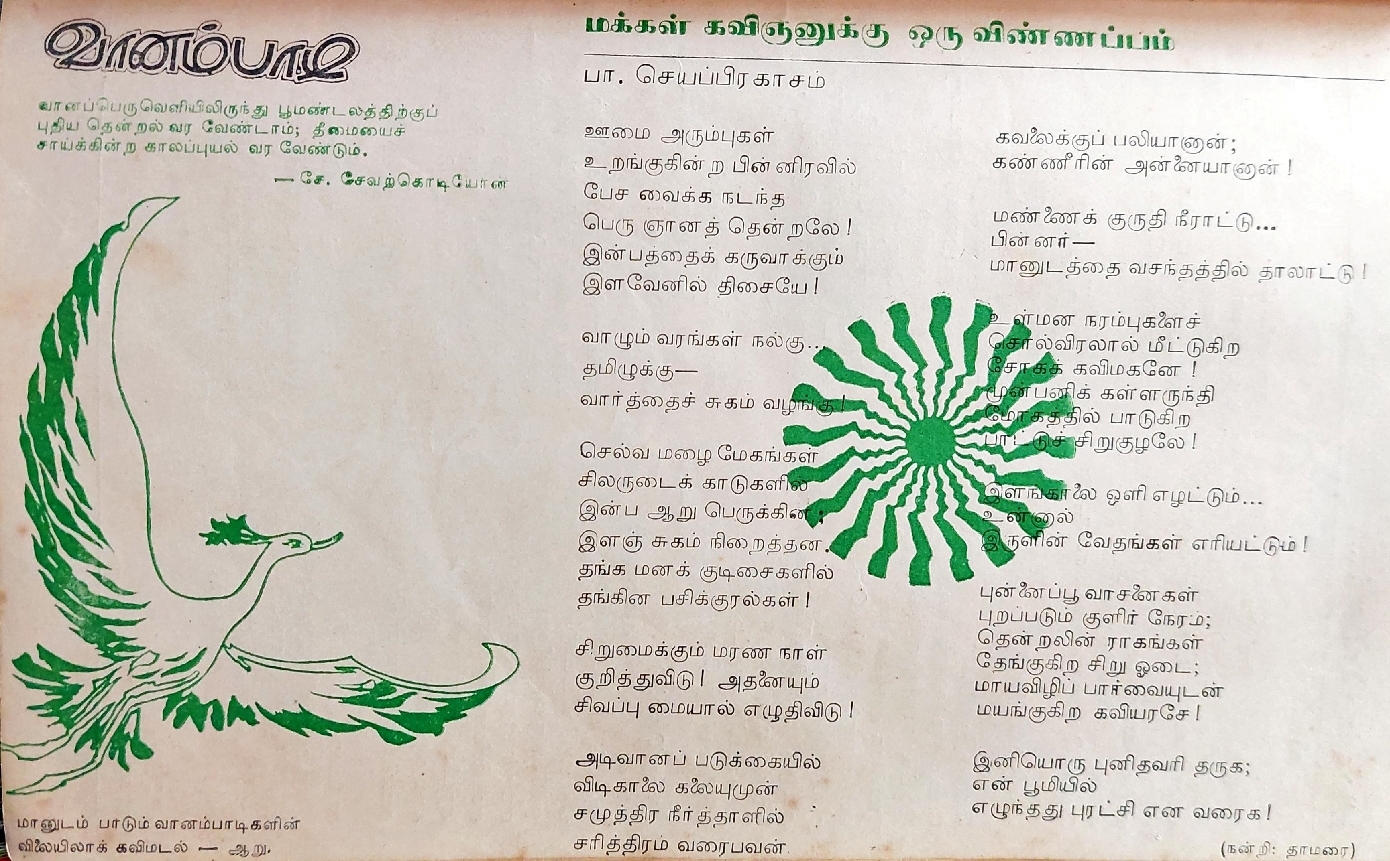 வானம்பாடி
வானப்பெருவெளியிலிருந்து பூமண்டலத்திற்குப்
புதிய தென்றல் வர வேண்டாம்; தீமையைச்
சாய்க்கின்ற காலப்புயல் வர வேண்டும்.
— சே. சேவற்கொடியோன்
மானுடம் பாடும் வானம்பாடிகளின்
விலையிலாக் கவிமடல் — ஆறு.
மக்கள் கவிஞனுக்கு ஒரு விண்ணப்பம்
பா. செயப்பிரகாசம்
ஊமை அரும்புகள்
உறங்குகின்ற பின்னிரவில்
பேச வைக்க நடந்த
பெரு ஞானத் தென்றலே!
இன்பத்தைக் கருவாக்கும்
இளவேனில் திசையே!
வாழும் வரங்கள் நல்கு...
தமிழுக்கு—
வார்த்தைச் சுகம் வழங்கு!
செல்வ மழை மேகங்கள்
சிலருடைக் காடுகளில்
இன்ப ஆறு பெருக்கின;
இளஞ் சுகம் நிறைத்தன.
தங்க மனக் குடிசைகளில்
தங்கின பசிக்குரல்கள்!
சிறுமைக்கும் மரண நாள்
குறித்துவிடு! அதனையும்
சிவப்பு மையால் எழுதிவிடு!
அடிவானப் படுக்கையில்
விடிகாலை கலையுமுன்
சமுத்திர நீர்த்தாளில்
சரித்திரம் வரைபவன்
கவலைக்குப் பலியானான்;
கண்ணீரின் அன்னையானான்!
மண்ணைக் குருதி நீராட்டு...
பின்னர்—
மானுடத்தை வசந்தத்தில் தாலாட்டு!
உள்மன நரம்புகளைச்
சொல்விரலால் மீட்டுகிற
சோகக் கவிமகனே!
முன்பனிக் கள்ளருந்தி
மோகத்தில் பாடுகிற
பாட்டுச் சிறுகுழலே!
இளங்காலை ஒளி எழட்டும்...
உன்னால்
இருளின் வேதங்கள் எரியட்டும்!
புன்னைப்பூ வாசனைகள்
புறப்படும் குளிர் நேரம்;
தென்றலின் ராகங்கள்
தேங்குகிற சிறு ஓடை;
மாயவிழிப் பார்வையுடன்
மயங்குகிற கவியரசே!
இனியொரு புனிதவரி தருக;
என் பூமியில்
எழுந்தது புரட்சி என வரைக!
(நன்றி: தாமரை)